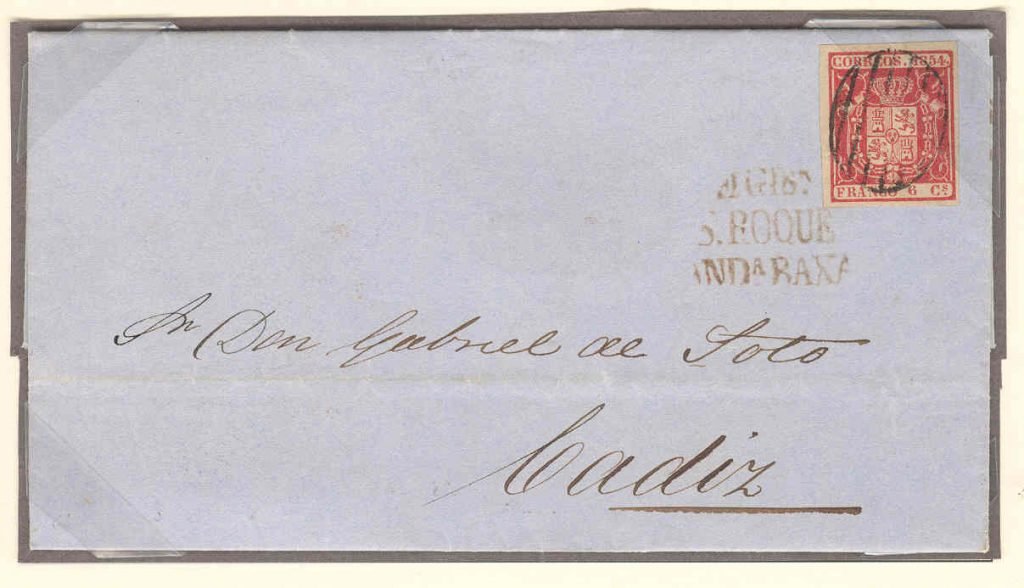 CORREOS. 1854.
FRANCO 6 Cs.
S. ROQUE
ANDa BAXA
Sr Don Gabriel de Soto
Cadiz